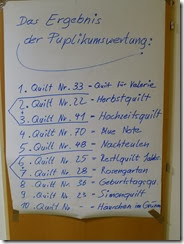 Das Ergebnis
der Puplikumswertung:
1. Quilt Nr. 33 - Quilt für Valerie
2. Quilt Nr. 22 - Herbstquilt
3. Quilt Nr. 41 - Hochzeitsquilt
4. Quilt Nr. 70 - Blue Note
5. Quilt Nr. 48 - Nachteulen
6. Quilt Nr. 25 -
7. Quilt Nr. 28 - Rosengarten
8. Quilt Nr. - Geburtstagsqu.
9. Quilt Nr. - Simonquilt
10. Quilt Nr. - Häuschen im Grünen